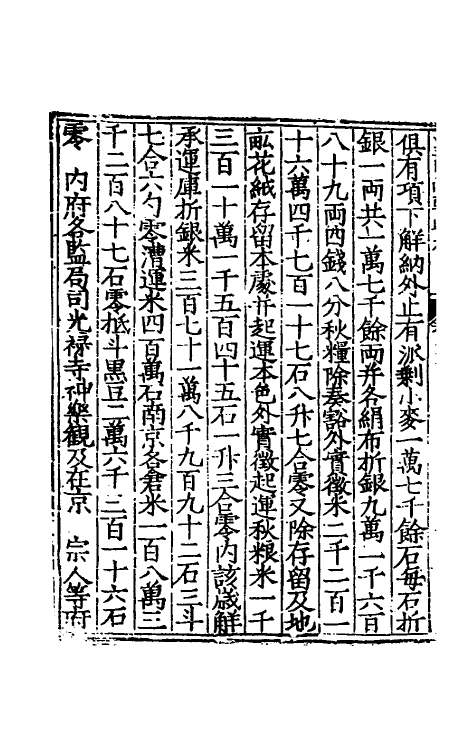 俱有項下解納外止有派剩小麥一萬七千餘石每石折
銀一両共一萬七千餘両并各絹布折銀九萬一千六百
八十九両四錢八分秋糧除奏豁外實徵米二千二百一
十六萬四千七百一十七石八升七合零又除存留及地
畝花絨存留本處并起運本色外實徵起運秋粮米一千
三百一十萬一千五百四十五石一升三合零内該歲解
承運庫折銀米三百七十一萬八千九百九十二石三斗
七合六勺零漕運米四百萬石南京各倉米一百八萬三
千二百八十七石零抵斗黒豆二萬六千三百一十六石
零　内府各監局司光禄寺神樂觀及在京　宗人等府